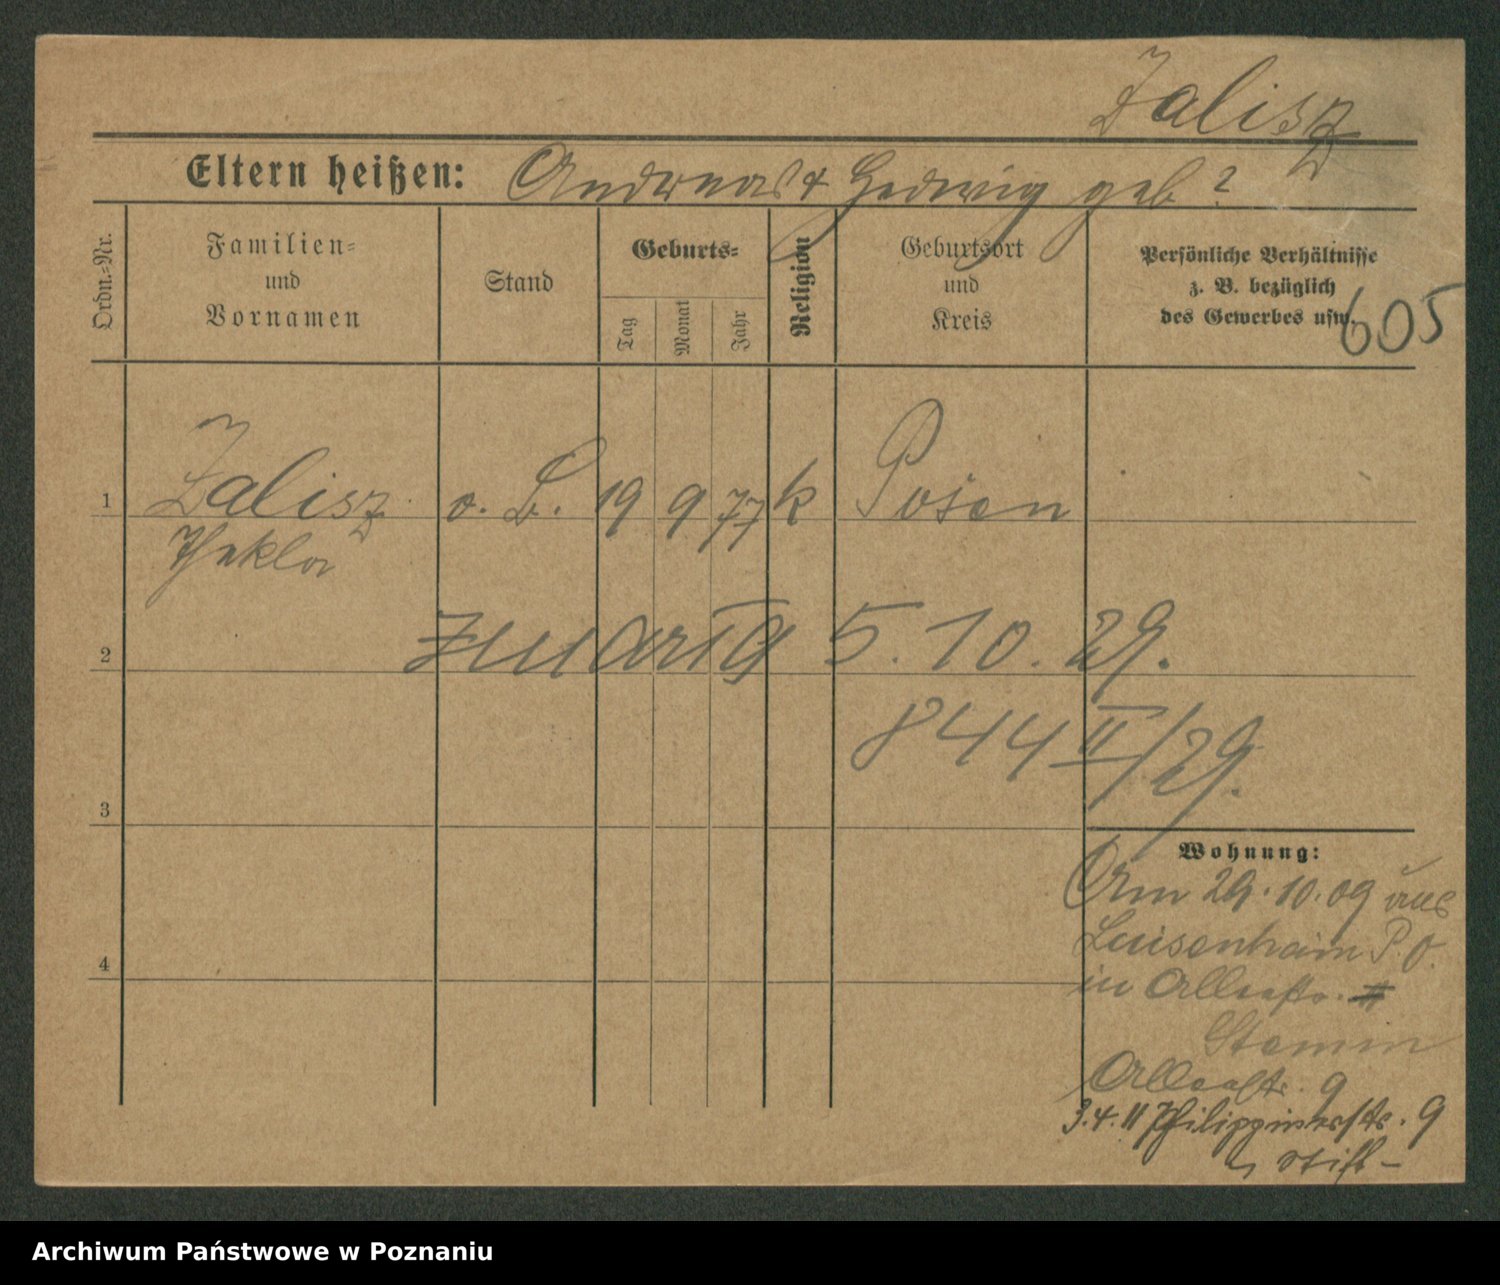 Zalisz
Eltern heißen: Andreas & Hedwig geb ?
Ordn.=Nr.
Familien=
und
Vornamen
Stand
Geburts=
Tag
Monat
Jahr
Religion
Geburtsort
und
Kreis
Persönliche Verhältnisse
z. B. bezüglich
des Gewerbes usw.
605
1 Zalisz o. B. 19 9 77 k Posen
Thekla
2 5. 10. 29.
844 II/29.
3
Wohnung:
Am 29.10.09 aus
Luisenhain P. O.
in
4
9
3.4.11 Philippinerstr. 9
Archiwum Państwowe w Poznaniu